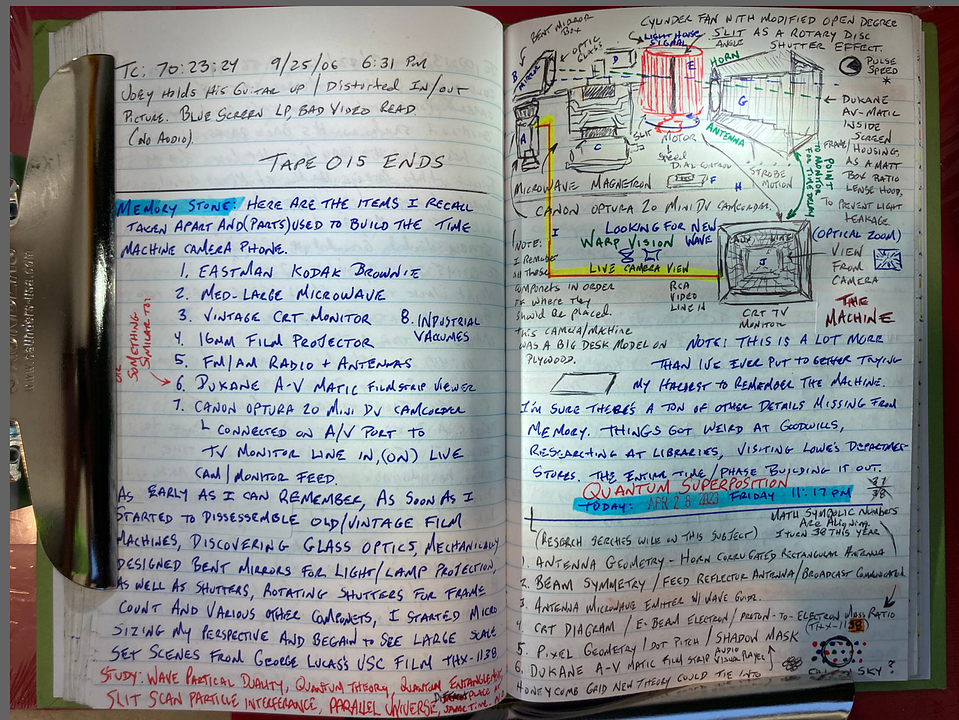 TC: 70:23:24 9/25/06 6:31 PM
JOEY HOLDS HIS GUITAR UP / DISTORTED IN/OUT
PICTURE. BLUE SCREEN LP, BAD VIDEO READ.
(NO AUDIO).
TAPE 015 ENDS
MEMORY STONE: HERE ARE THE ITEMS I RECALL
TAKEN APART AND (PARTS) USED TO BUILD THE TIME
MACHINE CAMERA PHONE.
1. EASTMAN KODAK BROWNIE
2. MED-LARGE MICROWAVE
3. VINTAGE CRT MONITOR 8. INDUSTRIAL
VACUMES
4. 16MM FILM PROJECTOR
5. FM/AM RADIO + ANTENNAS
OR SOMETHING SIMILAR TO:
6. DUKANE A-V MATIC FILMSTRIP VIEWER
7. CANON OPTURA 20 MINI DV CAMCORDER
CONNECTED ON A/V PORT TO
TV MONITOR LINE IN, (ON) LIVE
CAM/MONITOR FEED.
AS EARLY AS I CAN REMEMBER, AS SOON AS I
STARTED TO DISSESSEMBLE OLD/VINTAGE FILM
MACHINES, DISCOVERING GLASS OPTICS, MECHANICALLY
DESIGNED BENT MIRRORS FOR LIGHT/LAMP PROJECTION,
AS WELL AS SHUTTERS, ROTATING SHUTTERS FOR FRAME
COUNT AND VARIOUS OTHER COMPONETS, I STARTED MICRO
SIZING MY PERSPECTIVE AND BEGAN TO SEE LARGE SCALE
SET SCENES FROM GEORGE LUCAS'S USC FILM THX-1138.
STUDY: WAVE PARTICAL DUALITY, QUANTUM THEORY, QUANTUM ENTANGLEMENT,
SLIT SCAN PARTICLE INTERFERANCE, PARALLEL UNIVERSE, PLACE SAME TIME.
www.saunders-usa.com
BENT MIRROR
BOX
OPTIC
GLASS
LIGHT HOUSE
SIGNAL
CYLINDER FAN WITH MODIFIED OPEN DEGREE
ANGLE SLIT AS A ROTARY DISC
SHUTTER EFFECT.
PULSE
SPEED
B
D
E
HORN
G
A
C
SLIT
MOTOR
SPEED
DIAL CONTROL
F
ANTENNA
STROBE
MOTION
H
POINT
TO MONITOR
FOR
DUKANE
AV-MATIC
INSIDE
SCREEN
FRAME/HOUSING,
AS A MATT
BOX RATIO
LENSE HOOD,
TO PREVENT LIGHT
LEAKAGE.
MICROWAVE MAGNETRON
CANON OPTURA 20 MINI DV CAMCORDER.
I
LOOKING FOR NEW
WARP VISION WAVE
LIVE CAMERA VIEW
RCA
VIDEO
LINE IN
J
CRT TV
MONITOR
(OPTICAL ZOOM)
VIEW
FROM
CAMERA
THE
MACHINE
NOTE:
I REMEMBER
ALL THESE
COMPONENTS IN ORDER
OF WHERE THEY
SHOULD BE PLACED.
THIS CAMERA/MACHINE
WAS A BIG DESK MODEL ON
PLYWOOD.
NOTE! THIS IS A LOT MORE
THAN I'VE EVER PUT TOGETHER TRYING
MY HARDEST TO REMEMBER THE MACHINE.
I'M SURE THERE'S A TON OF OTHER DETAILS MISSING FROM
MEMORY. THINGS GOT WEIRD AT GOODWILLS,
RESEARCHING AT LIBRARIES, VISITING LOWE'S DEPARTMENT
STORES. THE ENTIRE TIME/PHASE BUILDING IT OUT.
QUANTUM SUPERPOSITION
TODAY: APR 28 2023 FRIDAY 11:17 PM
37
38
MATH SYMBOLIC NUMBERS
ARE ALIGNING.
I TURN 38 THIS YEAR
(RESEARCH SERCHES WILL ON THIS SUBJECT)
1. ANTENNA GEOMETRY - HORN CORRUGATED RECTANGULAR ANTENNA
2. BEAM SYMMETRY / FEED REFLECTOR ANTENNA/BROADCAST COMMUNICATION
3. ANTENNA MICROWAVE EMITTER W/ WAVE GUIDE.
4. CRT DIAGRAM / E-BEAM ELECTRON / PROTON-TO-ELECTRON MASS RATIO
(THX-1138)
5. PIXEL GEOMETRY / DOT PITCH / SHADOW MASK
6. DUKANE A-V MATIC FILM STRIP AUDIO
VISUAL PLAYER
HONEYCOMB GRID NEW THEORY COULD TIE INTO
SKY?